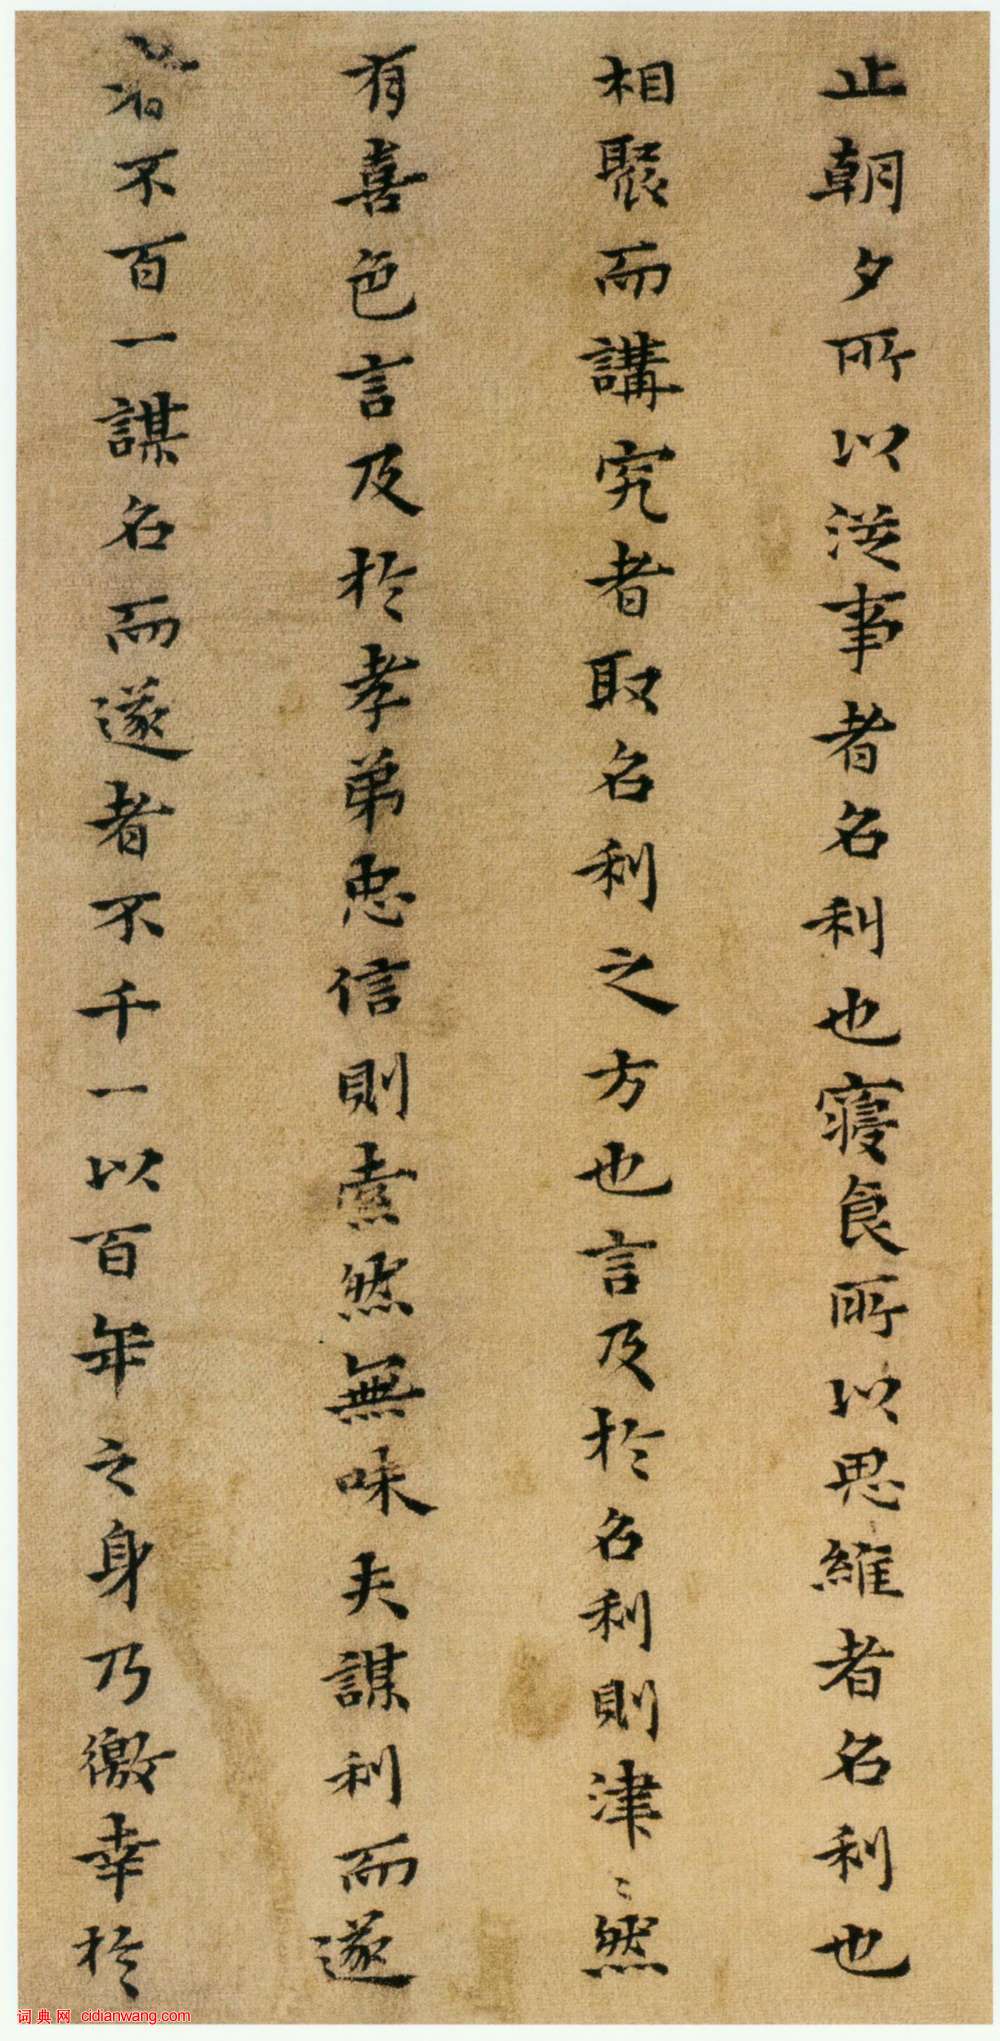 止朝夕所以從事者名利也寢食所以思維者名利也
相聚而講究者取名利之方也言及於名利則津〻然
有喜色言及於孝弟忠信則索然無味夫謀利而遂
者不百一謀名而遂者不千一以百年之身乃徼幸於
词典网 cidianwang.com